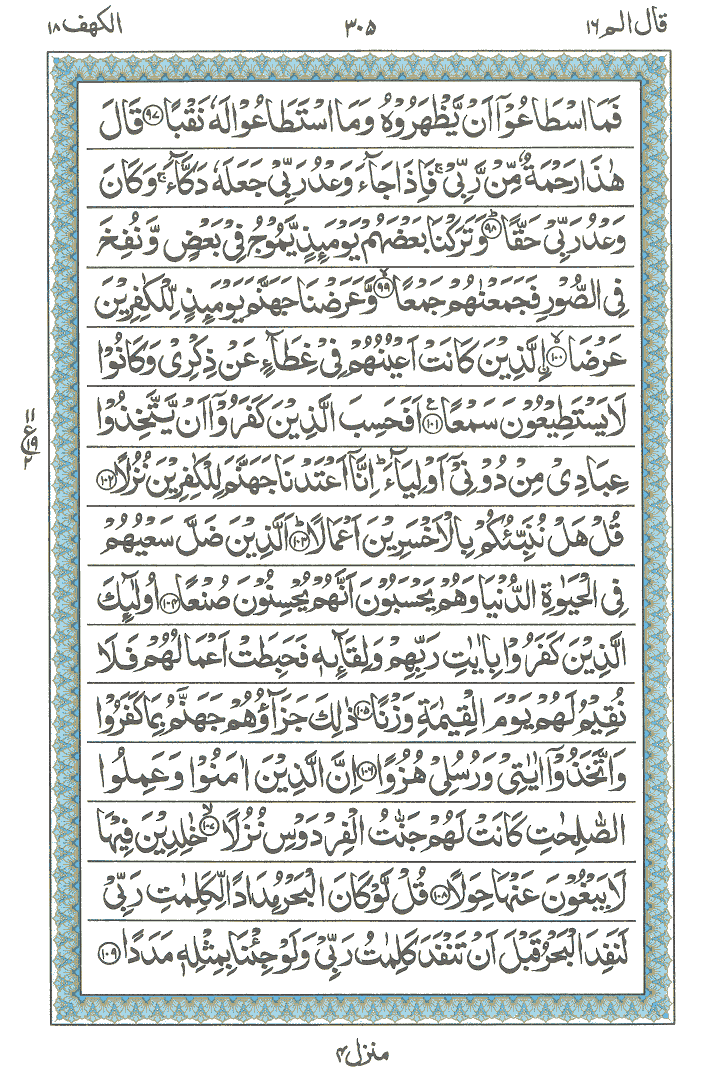 قال الم ١٦ ٣٠٥ الكهف ١٨
فَمَا اسْطَاعُوْۤا اَنْ يَّظْهَرُوْهُ وَمَا اسْتَطَاعُوْا لَهٗ نَقْبًا ﴿٩٧﴾ قَالَ
هٰذَا رَحْمَةٌ مِّنْ رَّبِّيْ ۚ فَاِذَا جَآءَ وَعْدُ رَبِّيْ جَعَلَهٗ دَكَّآءَ ۚ وَكَانَ
وَعْدُ رَبِّيْ حَقًّا ؕ﴿٩٨﴾ وَتَرَكْنَا بَعْضَهُمْ يَوْمَىِٕذٍ يَّمُوْجُ فِيْ بَعْضٍ وَّ نُفِخَ
فِي الصُّوْرِ فَجَمَعْنٰهُمْ جَمْعًا ۙ﴿٩٩﴾ وَّعَرَضْنَا جَهَنَّمَ يَوْمَىِٕذٍ لِّلْكٰفِرِيْنَ
عَرْضَا ۙ﴿١٠٠﴾ اۨلَّذِيْنَ كَانَتْ اَعْيُنُهُمْ فِيْ غِطَآءٍ عَنْ ذِكْرِيْ وَكَانُوْا
لَا يَسْتَطِيْعُوْنَ سَمْعًا ﴿١٠١﴾ۧ اَفَحَسِبَ الَّذِيْنَ كَفَرُوْۤا اَنْ يَّتَّخِذُوْا
عِبَادِيْ مِنْ دُوْنِيْۤ اَوْلِيَآءَ ؕ اِنَّاۤ اَعْتَدْنَا جَهَنَّمَ لِلْكٰفِرِيْنَ نُزُلًا ﴿١٠٢﴾
قُلْ هَلْ نُنَبِّئُكُمْ بِالْاَخْسَرِيْنَ اَعْمَالًا ؕ﴿١٠٣﴾ اَلَّذِيْنَ ضَلَّ سَعْيُهُمْ
فِي الْحَيٰوةِ الدُّنْيَا وَهُمْ يَحْسَبُوْنَ اَنَّهُمْ يُحْسِنُوْنَ صُنْعًا ﴿١٠٤﴾ اُولٰٓىِٕكَ
الَّذِيْنَ كَفَرُوْا بِاٰيٰتِ رَبِّهِمْ وَلِقَآىِٕهٖ فَحَبِطَتْ اَعْمَالُهُمْ فَلَا
نُقِيْمُ لَهُمْ يَوْمَ الْقِيٰمَةِ وَزْنًا ﴿١٠٥﴾ ذٰلِكَ جَزَآؤُهُمْ جَهَنَّمُ بِمَا كَفَرُوْا
وَاتَّخَذُوْۤا اٰيٰتِيْ وَرُسُلِيْ هُزُوًا ﴿١٠٦﴾ اِنَّ الَّذِيْنَ اٰمَنُوْا وَعَمِلُوا
الصّٰلِحٰتِ كَانَتْ لَهُمْ جَنّٰتُ الْفِرْدَوْسِ نُزُلًا ۙ﴿١٠٧﴾ خٰلِدِيْنَ فِيْهَا
لَا يَبْغُوْنَ عَنْهَا حِوَلًا ﴿١٠٨﴾ قُلْ لَّوْ كَانَ الْبَحْرُ مِدَادًا لِّكَلِمٰتِ رَبِّيْ
لَنَفِدَ الْبَحْرُ قَبْلَ اَنْ تَنْفَدَ كَلِمٰتُ رَبِّيْ وَلَوْ جِئْنَا بِمِثْلِهٖ مَدَدًا ﴿١٠٩﴾
١١
ع ١٩
٢
منزل ۴